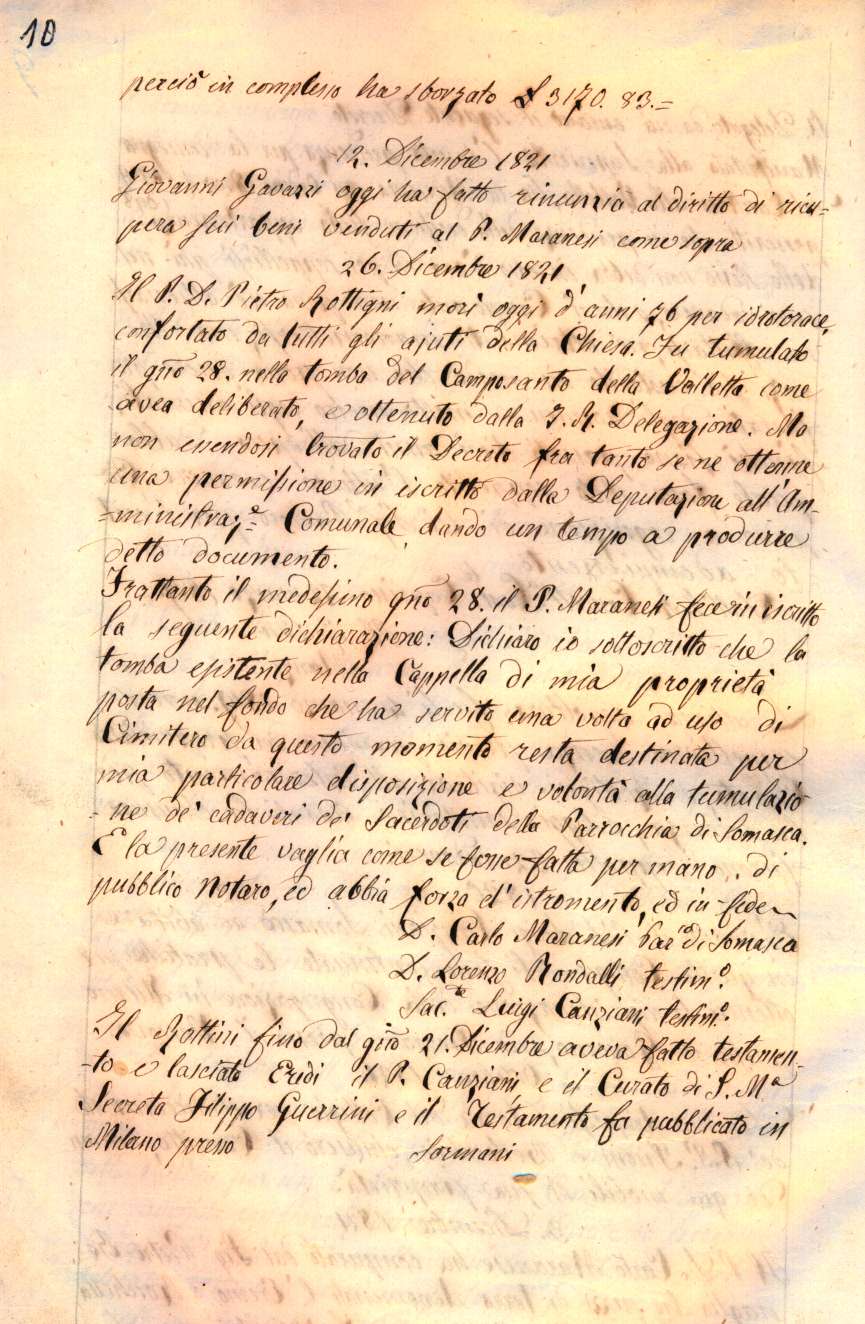 10
perciò in complesso ha sborzato £ 3170. 83.=
12. Dicembre 1821
Giovanni Gavazzi oggi ha fatto rinunzia al diritto di ricu=
pera sui beni venduti al P. Maranesi come sopra
26. Dicembre 1821
Il P. D. Pietro Rottigni morì oggi d'anni 76 per idrotorace,
confortato da tutti gli ajuti della Chiesa. Fu tumulato
il gño 28. nella tomba del Camposanto della Valletta come
avea deliberato, e ottenuto dalla I. R. Delegazione. Ma
non essendosi trovato il Decreto fra tanto se ne ottenne
una permissione in iscritto dalla Deputazione all'Am-
=ministraz.e Comunale, dando un tempo a produrre
detto documento.
Frattanto il medesimo gño 28. il P. Maranesi fece in iscritto
la seguente dichiarazione: Dichiaro io sottoscritto che la
tomba esistente nella Cappella di mia proprietà
posta nel fondo che ha servito una volta ad uso di
Cimitero da questo momento resta destinata per
mia particolare disposizione e volontà alla tumulazio
=ne de' cadaveri de' Sacerdoti della Parrocchia di Somasca.
E la presente vaglia come se fosse fatta per mano di
pubblico Notaro, ed abbia forza d'istromento, ed in fede
D. Carlo Maranesi Par.co di Somasca
D. Lorenzo Rondalli testim.o
Sac.te Luigi Canziani testim.o
Il Rottini fino dal gño 21. Dicembre aveva fatto testamen-
-to e lasciato Eredi il P. Canziani e il Curato di S. Ma
Secreta Filippo Guerrini e il Testamento fu pubblicato in
Milano presso Sormani